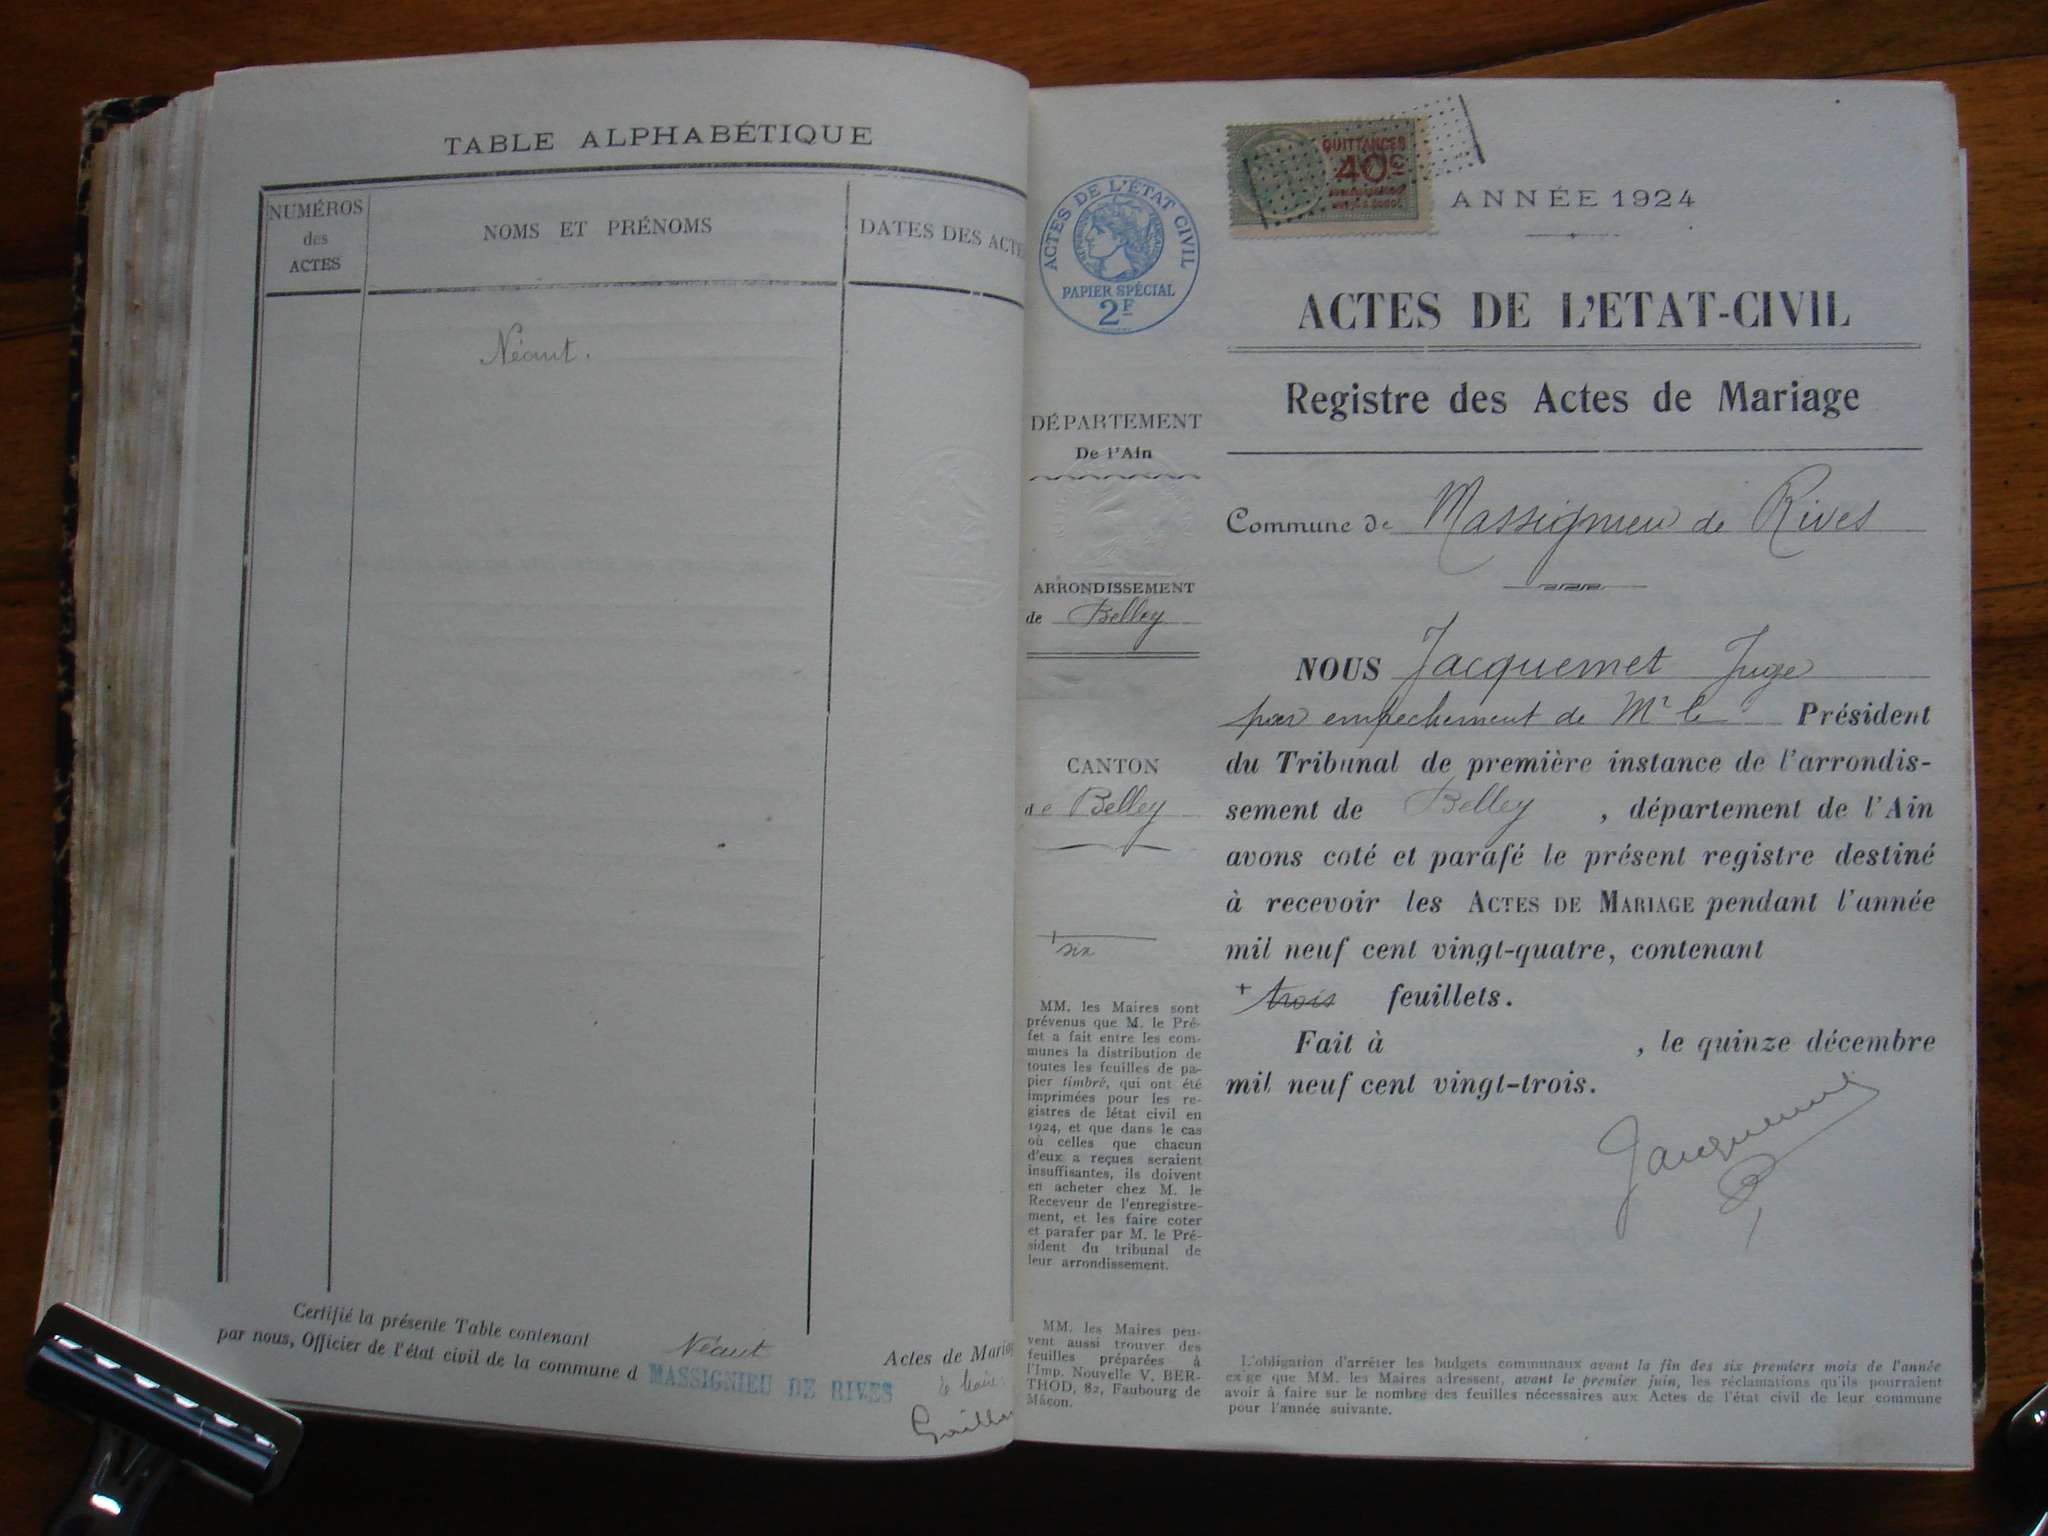 TABLE ALPHABÉTIQUE
NUMÉROS
des
ACTES
NOMS ET PRÉNOMS
DATES DES ACTE
Néant.
Certifié la présente Table contenant
Néant
Actes de Mariag
par nous, Officier de l'état civil de la commune d
MASSIGNIEU DE RIVES
le Maire
ACTES DE L'ÉTAT CIVIL
RÉPUBLIQUE FRANÇAISE
PAPIER SPÉCIAL
2F
DÉPARTEMENT
De l'Ain
ARRONDISSEMENT
de Belley
CANTON
de Belley
+
six
MM. les Maires sont
prévenus que M. le Pré-
fet a fait entre les com-
munes la distribution de
toutes les feuilles de pa-
pier timbré, qui ont été
imprimées pour les re-
gistres de létat civil en
1924, et que dans le cas
où celles que chacun
d'eux a reçues seraient
insuffisantes, ils doivent
en acheter chez M. le
Receveur de l'enregistre-
ment, et les faire coter
et parafer par M. le Pré-
sident du tribunal de
leur arrondissement.
MM. les Maires peu-
vent aussi trouver des
feuilles préparées à
l'Imp. Nouvelle V. BER-
THOD, 82, Faubourg de
Mâcon.
QUITTANCES
40c
ANNÉE 1924
ACTES DE L'ETAT-CIVIL
Registre des Actes de Mariage
Commune de Massignieu de Rives
NOUS Jacquemet Juge
par empechement de Mr le Président
du Tribunal de première instance de l'arrondis-
sement de Belley , département de l'Ain
avons coté et parafé le présent registre destiné
à recevoir les ACTES DE MARIAGE pendant l'année
mil neuf cent vingt-quatre, contenant
+ trois feuillets.
Fait à , le quinze décembre
mil neuf cent vingt-trois.
Jacquemet
L'obligation d'arrêter les budgets communaux avant la fin des six premiers mois de l'année
exige que MM. les Maires adressent, avant le premier juin, les réclamations qu'ils pourraient
avoir à faire sur le nombre des feuilles nécessaires aux Actes de l'état civil de leur commune
pour l'année suivante.